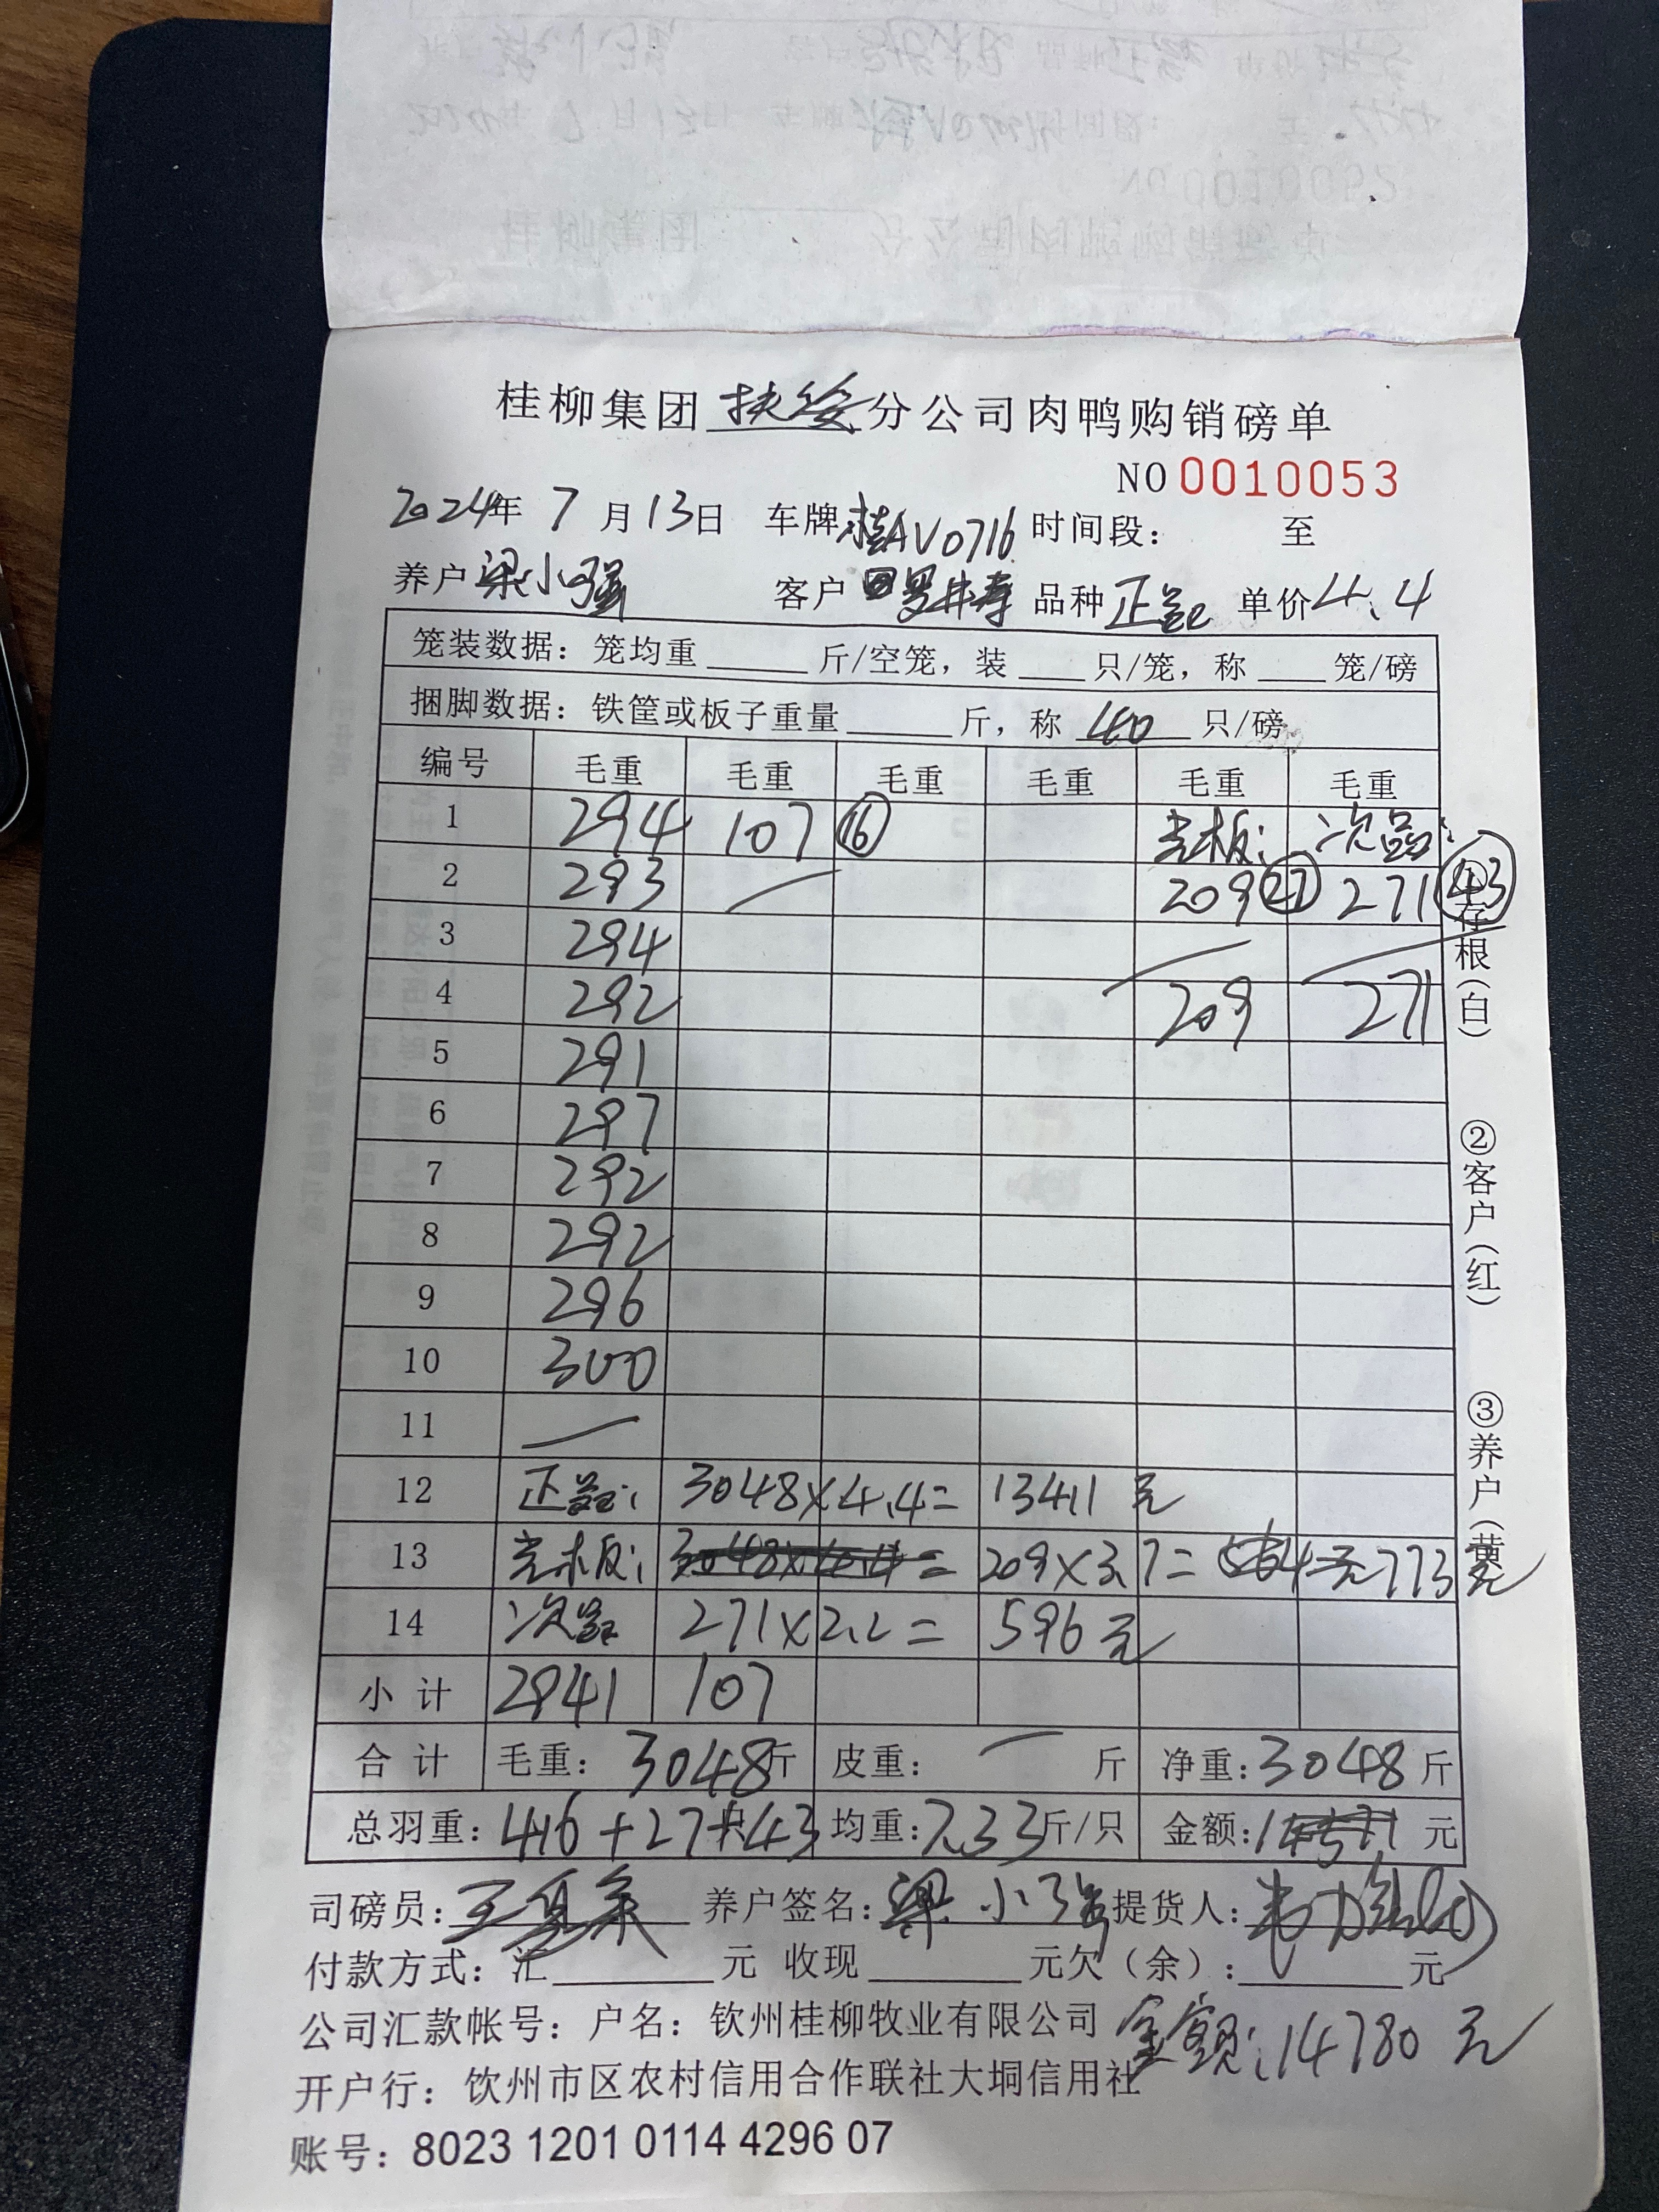 桂柳集团扶绥分公司肉鸭购销磅单
NO 0010053
2024年 7 月 13日 车牌桂AV0716 时间段： 至
养户梁小强 客户 品种正品 单价4.4
笼装数据：笼均重 斤/空笼，装 只/笼，称 笼/磅
捆脚数据：铁筐或板子重量 斤，称 40 只/磅
编号 毛重 毛重 毛重 毛重 毛重 毛重
1 294 107 16 光板： 次品：
2 293 209 27 271 43
3 294
4 292 209 271
5 291
6 297
7 292
8 292
9 296
10 300
11
12 正品： 3048×4.4= 13411 元
13 光板： 3048×4.4= 209×3.7= 773元
14 次品 271×2.2= 596元
小计 2941 107
合计 毛重：3048斤 皮重： 斤 净重：3048斤
总羽重：416+27+43只 均重：7.33斤/只 金额： 元
司磅员： 养户签名：梁小强 提货人：
付款方式：汇 元 收现 元欠（余）： 元
公司汇款帐号：户名：钦州桂柳牧业有限公司 金额：14780元
开户行：钦州市区农村信用合作联社大垌信用社
账号：8023 1201 0114 4296 07
存根（白）
②客户（红）
③养户（黄）